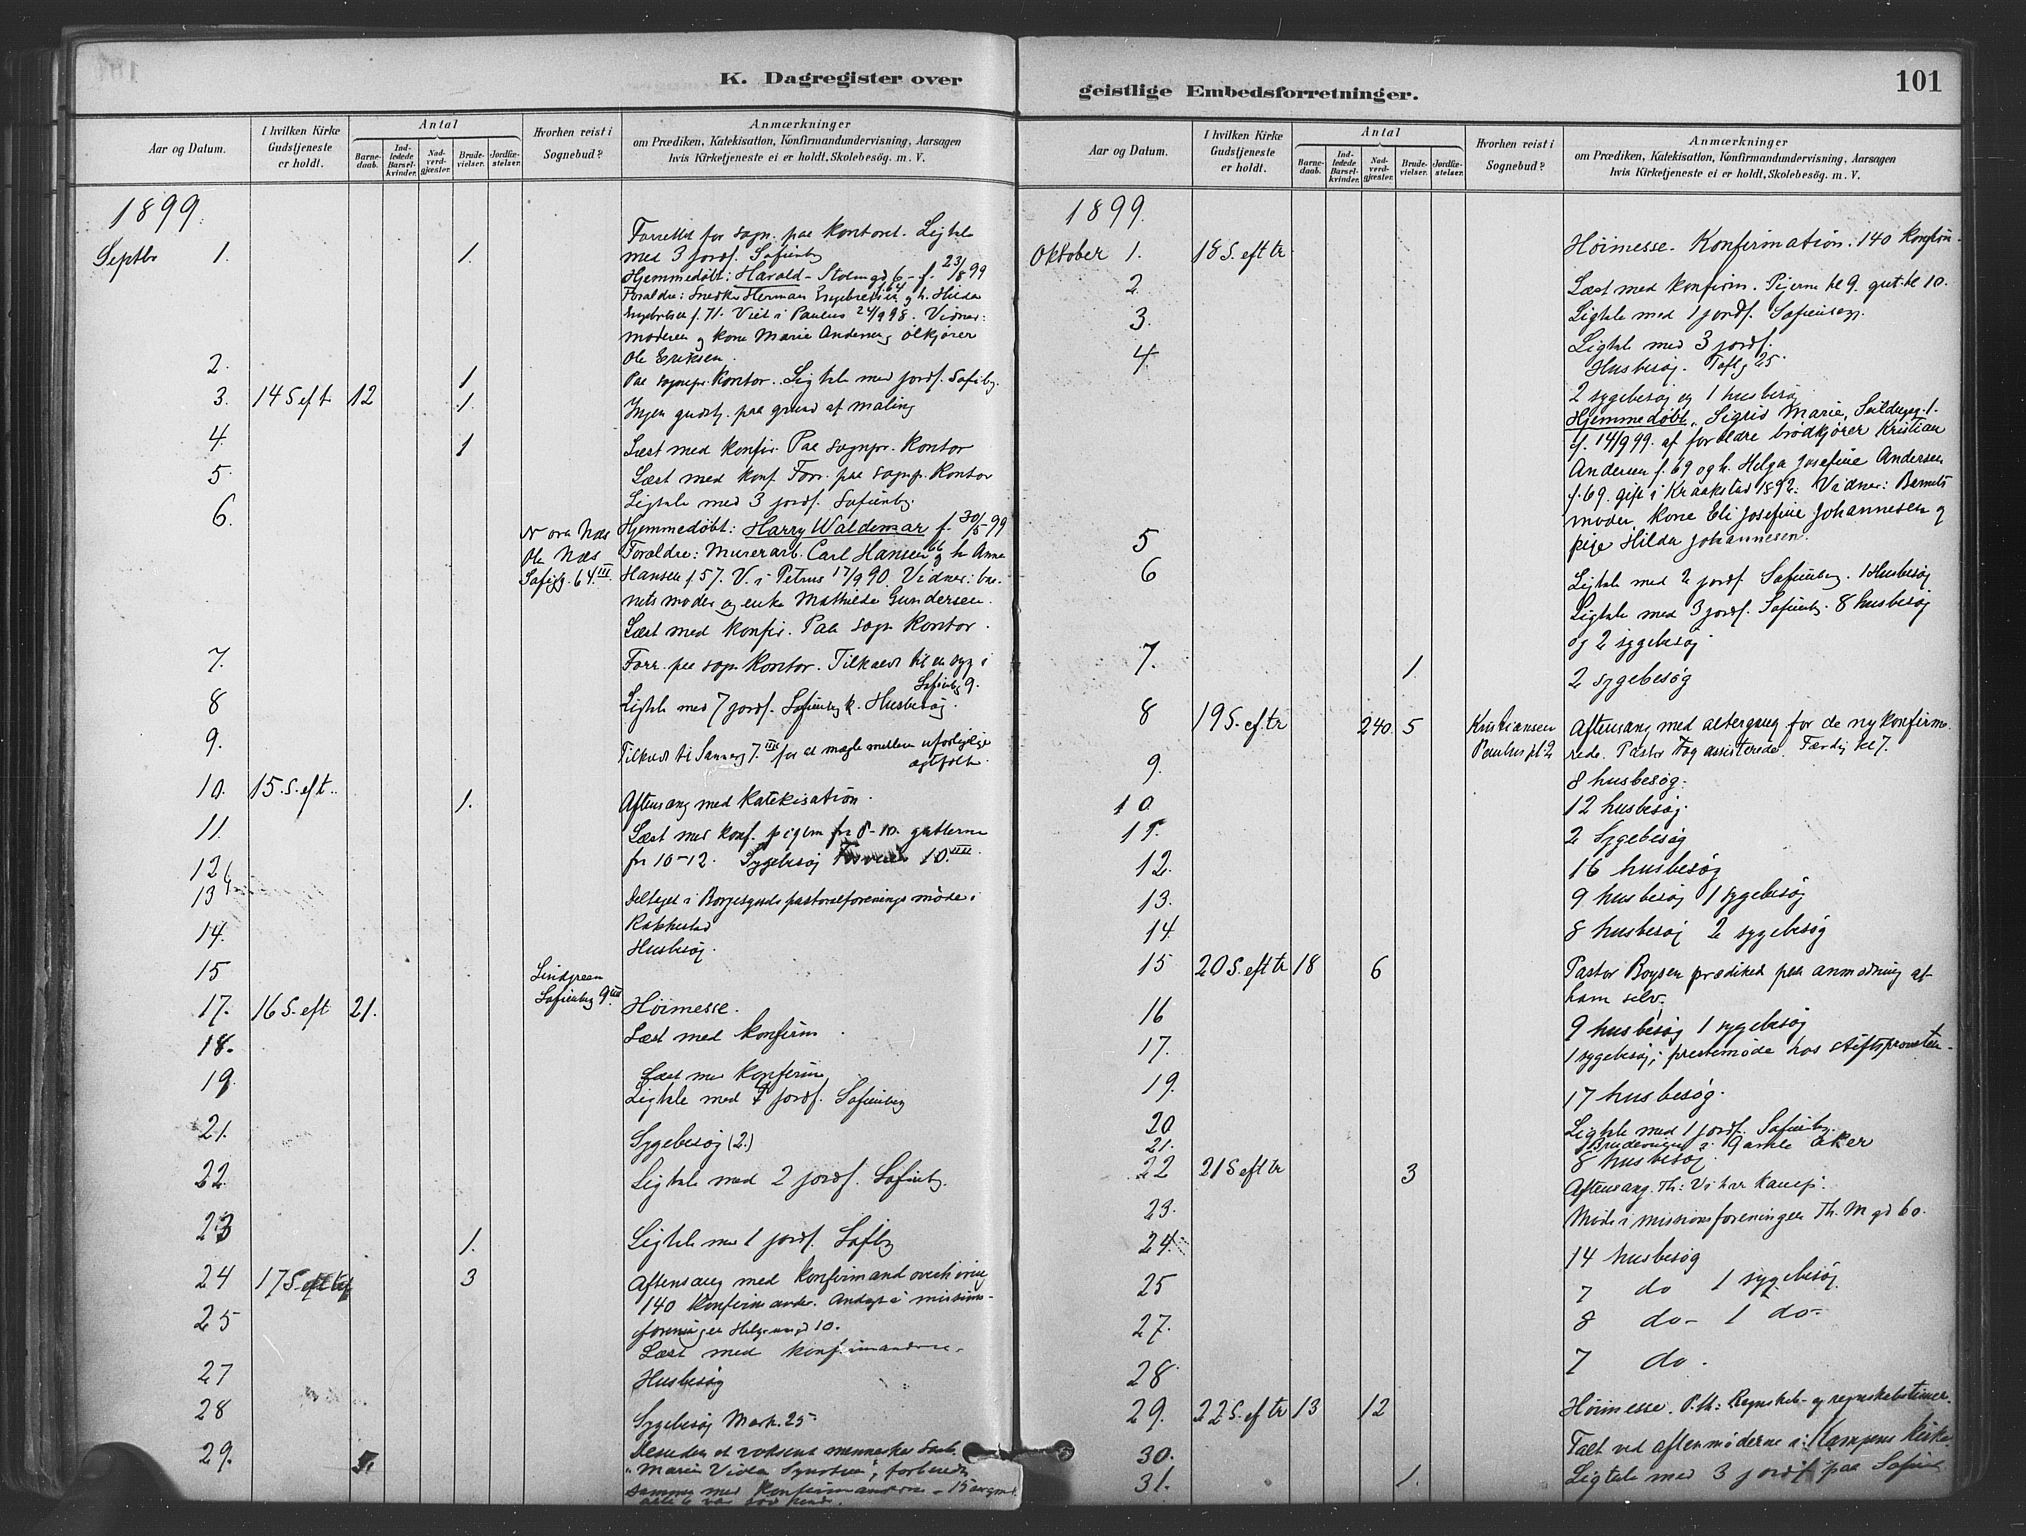 K. Dagregister over
Aar og Datum.
I hvilken Kirke Gudstjeneste er holdt.
Antal
Barnedaab.
Indledede Barselkvinder.
Nadverdgjæster.
Brudevielser.
Jordfæstelser.
Hvorhen reist i Sognebud?
Anmærkninger
om Prædiken, Katekisation, Konfirmandundervisning, Aarsagen
hvis Kirketjeneste ei er holdt, Skolebesög. m. V.
1899.
Septbr 1. 1. Forrettet for sogn. paa kontoret. Ligtale
med 3 jordf. Sofienbg
Hjemmedøbt: Harald - f. 23/8 99
Forældre: Snedker Herman Engebretsen f. 64 og h. Hilda
Engebretsen f. 71. Viet i Paulus 24/9 98. Vidner:
moderen og kone Marie Andersen og ølkjører
Ole Eriksen.
2. 1 Paa sognepr. kontor. Ligtale med jordf. Sofienbg.
3. 14 S. eft. 12 1. Ingen gudstj. paa grund af maling
4. 1 Læst med konfir. Paa sognpr. kontor
5. Læst med konf. Forr. paa sognp. kontor
Ligtale med 3 jordf. Sofienbg.
6. Nora Næs
Ole Næs
Sofiegg. 64 III
Hjemmedøbt: Harry Waldemar f. 30/5 99
Forældre: Murerarb. Carl Hansen f. 66 og h. Anna
Hansen f 57. V. i Petrus 17/9 90. Vidner: bar-
nets moder og enke Mathilde Gundersen.
Læst med konfir. Paa sogn kontor.
7. Forr. paa sogn kontor. Tilkaldt til en syg i
Sofienbg 9.
8 Ligtale med 7 jordf. Sofienbg k. Husbesøg.
9. Tilkaldt til Sannerg 7. III for at mægle mellem uforligelige
ægtefolk.
10. 15. S. eft. 1. Aftensang med katekisation.
11. Læst med konf. pigerne fra 8-10. gutterne
fra 10-12. Sygebesøg 10. IIII
12
13 Deltaget i Borgesyssels pastoralforenings møde i
Rakkestad
14. Husbesøg.
15 Lindgreen
Sofienbg 9. III
17. 16 S. eft 21. Høimesse.
18. Læst med konfirm.
19. Læst med konfirm
Ligtale med jordf. Sofienberg
21. Sygebesøg (2.)
22. Ligtale med 2 jordf. Sofienbg.
23 1. Ligtale med 1 jordf. Sofbg
24 17 S. eft 3 Aftensang med konfirmandoverhøring
140 konfirmander. Andagt i missions-
foreningen Helgesensgd 10.
25 Læst med konfirmanderne.
27 Husbesøg
28 Sygebesøg Mark. 25
29. Desuden et voksent menneske
"Marie Vida
sammen med konfirmanderne - 15 aar gml.

geistlige Embedsforretninger.
101
Aar og Datum.
I hvilken Kirke Gudstjeneste er holdt.
Antal
Barnedaab.
Indledede Barselkvinder.
Nadverdgjæster.
Brudevielser.
Jordfæstelser.
Hvorhen reist i Sognebud?
Anmærkninger
om Prædiken, Katekisation, Konfirmandundervisning, Aarsagen
hvis Kirketjeneste ei er holdt, Skolebesög. m. V.
1899.
Oktober 1. 18 S. eft tr Høimesse. Konfirmation. 140 konfirm.
2. Læst med konfirm. Pigerne kl 9. gut. kl 10.
3. Ligtale med 1 jordf. Sofienbg.
4 Ligtale med 3 jordf.
Husbesøg. Toftg 25.
2 sygebesøg og 1 husbesøg
Hjemmedøbt, Sigrid Marie,
f. 14/9 99. af forældre brødkjører Kristian
Andersen f. 69 og h. Helga Josefine Andersen
f. 69. gift i Kraakstad 1892. Vidner: Barnets
moder, kone Eli Josefine Johannesen og
pige Hilda Johannesen.
5 Ligtale med 2 jordf Sofienberg. 1 Husbesøg
6 Ligtale med 3 jordf. Sofienb. 8 husbesøg
og 2 sygebesøg
7. 1. 2 sygebesøg
8 19 S. ef. tr 240. 5 Kristiansen
Pauluspl. 2
Aftensang med altergang for de ny konfirme-
rede. Pastor assisterede. Færdig kl 7.
9. 8 husbesøg.
10. 12 husbesøg.
11. 2 Sygebesøg
12. 16 husbesøg
13. 9 husbesøg 1 sygebesøg
14. 8 husbesøg 2 sygebesøg
15 20 S. eft tr 18 6 Pastor Boysen prædiked paa anmodning af
ham selv.
16 9 husbesøg 1 sygebesøg
17. 1 sygebesøg; prestemøde hos stiftsprovsten.
19. 17 husbesøg.
20 Ligtale med 1 jordf. Sofienbg.
21. Brudevigsel i Gamle Aker
8 husbesøg.
22 21 S eft tr 3 Aftensang. Th: Vi har
23. Møde i missionsforeningen Th. M gd 60.
24. 14 husbesøg
25 7 do 1 sygebesøg
27. 8 do - 1 do -
28. 7 do.
29. 22 S. ef tr 13 12 Høimesse. P. th: Regnskab og regnskabstimer.
30. Talt ved aftenmøderne i Kampens kirke.
31. 1. Ligtale med 3 jordf paa Sofienb